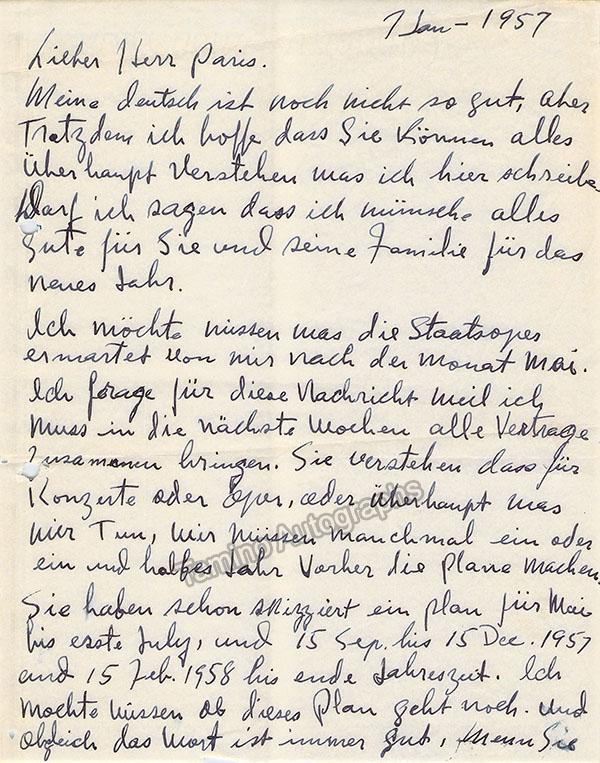 7 Jan - 1957
Lieber Herr Paris.
Meine deutsch ist noch nicht so gut, aber
Trotzdem ich hoffe dass Sie können alles
Überhaupt Verstehen was ich hier schreibe.
Darf ich sagen dass ich wünsche alles
Gute für Sie und seine Familie für das
neues Jahr.
Ich möchte wissen was die Staatsoper
erwartet von mir nach der Monat Mai.
Ich frage für diese Nachricht weil ich
muss in die nächste Wochen alle Vertrage
Zusammen bringen. Sie verstehen dass für
Konzerte oder Oper, oder überhaupt was
wir Tun, wir müssen manchmal ein oder
ein und halbes Jahr Vorher die plane machen.
Sie haben schon skizziert ein plan für Mai
bis erste July, und 15 Sep. bis 15 Dec. 1957
and 15 Feb. 1958 bis ende Jahreszeit. Ich
mochte wissen ob dieses Plan geht noch. und
obgleich das Wort ist immer gut, wenn Sie
Tamino Autographs